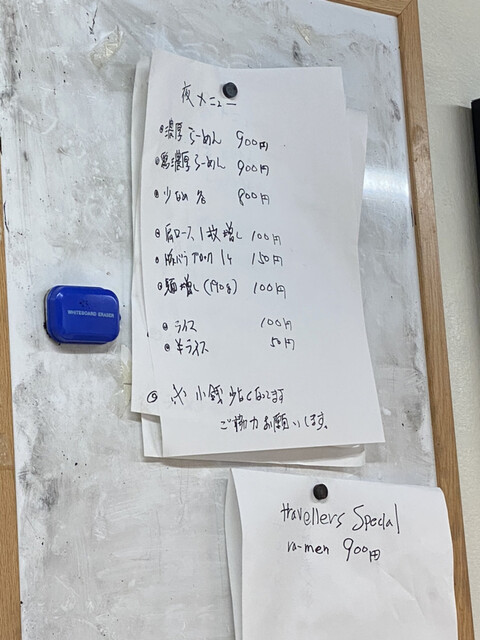 夜メニュー
濃厚らーめん 900円
黒濃厚らーめん 900円
少なめ 各 800円
肩ロース1枚増し 100円
豚バラブロック1ヶ 150円
麺増し(190g) 100円
ライス 100円
半ライス 50円
◎ ※ 小銭少なくなってます
ご協力お願いします。
WHITEBOARD ERASER
travellers Special
ra-men 900円